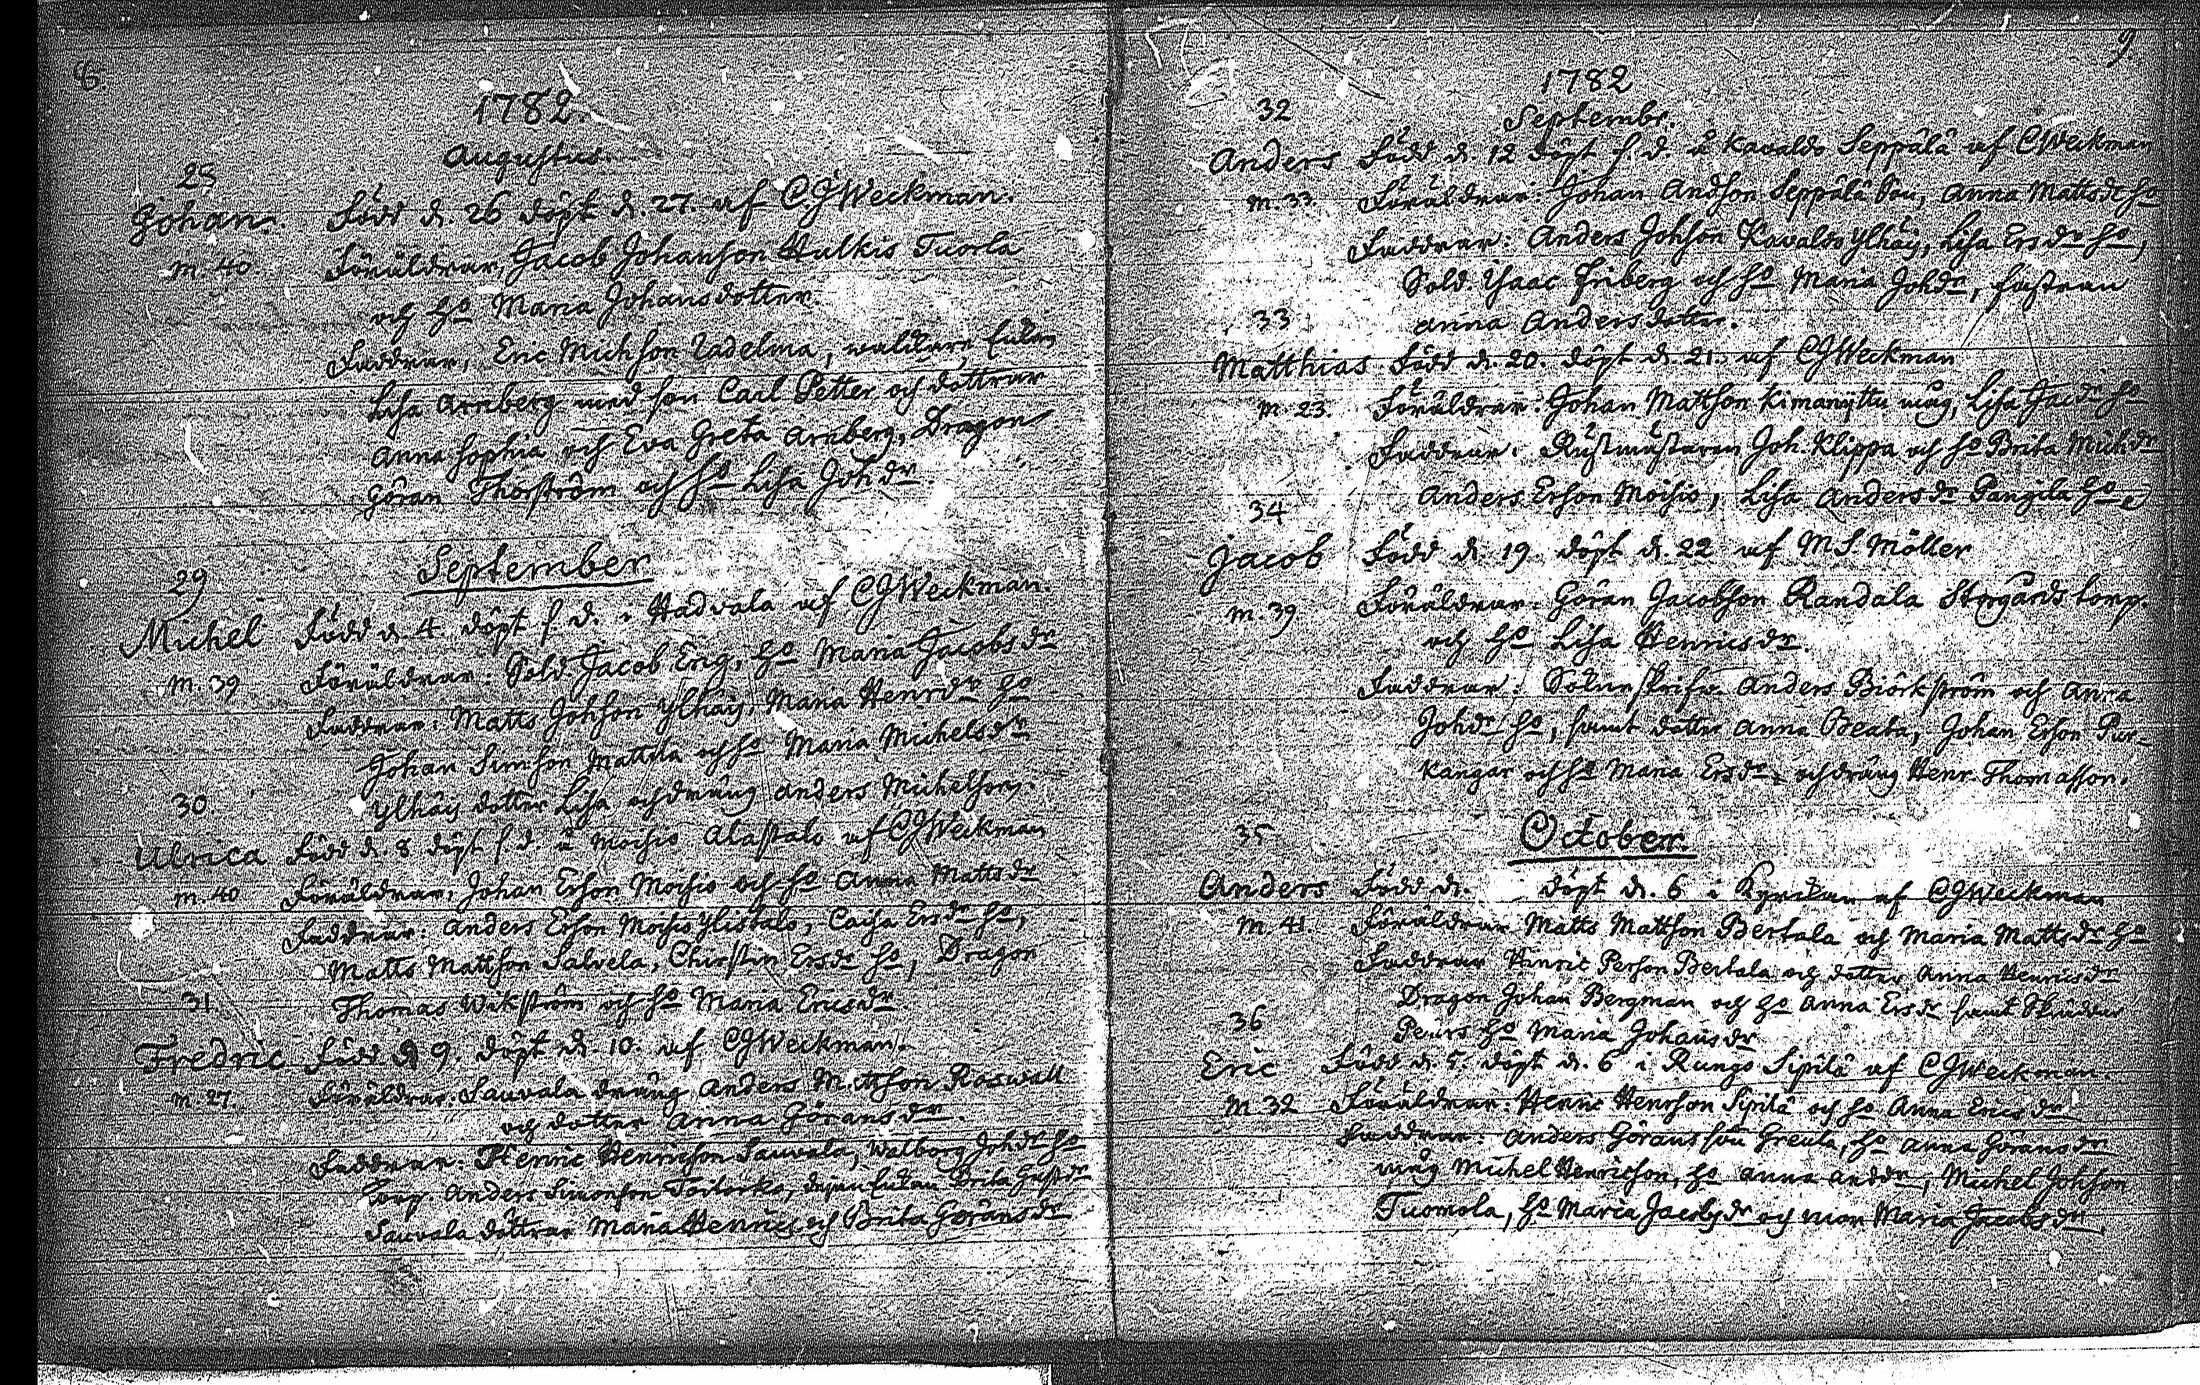 8.
1782.
Augustus.
28
Johan. Född d. 26 döpt d. 27. af C.G Weckman.
m. 40. Föräldrar, Jacob Johansson Hulkis Tuorla
och ho Maria Johansdotter.
Faddrar, Eric Michsson Uadelma,
Lisa Arnberg med son Carl Petter och döttrar
Anna Sophia och Eva Greta Arnberg, Dragon
Göran Thorström och ho Lisa Johdr.
September
29
Michel Född d. 4. döpt s. d. i Hadvala af CGWeckman.
m. 39 Föräldrar: Sold. Jacob Erig, ho Maria Jacobsdr
Faddrar: Matts Johsson Ylhäis, Maria Henrdr ho
Johan Simsson Mattila och ho Maria Michelsdr
Ylhäis dotter Lisa och dräng Anders Michelsson.
30.
Ulrica Född d. 8 döpt s. d. å Moisio Alastalo af CGWeckman
m. 40 Föräldrar, Johan Ersson Moisio och ho Anna Mattsdr
Faddrar: Anders Ersson Moisio Ylistalo, Caisa Ersdr ho,
Matts Mattsson Salvela, Christin Ersdr ho, Dragon
31. Thomas Wikström och ho Maria Ericsdr.
Fredric Född d 9. döpt d. 10. af CGWeckman.
m. 27. Föräldrar. Sauvala dräng Anders Mattsson Roswall
och dotter Anna Göransdr.
Faddrar: Henric Henricsson Sauvala, Walborg Johdr ho
Torp. Anders Simonsson Brita
Sauvala döttrar Maria Henrics och Brita Göransdr
9.
1782
32 Septembr.
Anders Född d. 12 döpt s. d. å Kavaldo Seppälä af CWeckman
m. 33. Föräldrar: Johan Andsson Seppälä Son, Anna Mattsdr ho
Faddrar: Anders Johsson Kavaldo Ylhäis, Lisa Ersdr ho,
Sold. Isaac Friberg och ho Maria Johdr,
33 Anna Andersdotter.
Matthias Född d. 20. döpt d. 21. af CGWeckman
m. 23. Föräldrar: Johan Mattsson Kimanyttu måg, Lisa Jacdr ho
Faddrar: Rustmästaren Joh. Klippa och ho Brita Michdr
Anders Ersson Moisio, Lisa Andersdr Pangila ho
34
Jacob Född d. 19. döpt d. 22 af M S. Möller
m. 39 Föräldrar: Göran Jacobsson Randala Storgårds torp.
och ho Lisa Henricsdr.
Faddrar: Anders Biörkström och Anna
Johdr ho, samt dotter Anna Beata, Johan Ersson Pur-
kangar och ho Maria Ersdr, och dräng Henr. Thomasson.
35 October.
Anders Född d. döpt d. 6 i Kyrkan af CGWeckman
m. 41. Föräldrar Matts Mattsson Bertala och Maria Mattsdr ho
Faddrar Henric Persson Bertala och dotter Anna Henricsdr
Dragon Johan Bergman och ho Anna Ersdr samt
36 ho Maria Johansdr
Eric Född d. 5. döpt d. 6 i Rungo Sipilä af CGWeckman.
m 32 Föräldrar: Henric Henrsson Sipilä och ho Anna Ericsdr
Faddrar: Anders Göransson Greula, ho Anna Göransdr
måg Michel Henricsson, ho Anna Anddr, Michel Johsson
Tuomola, ho Maria Jacobsdr och mor Maria Jacobsdr,